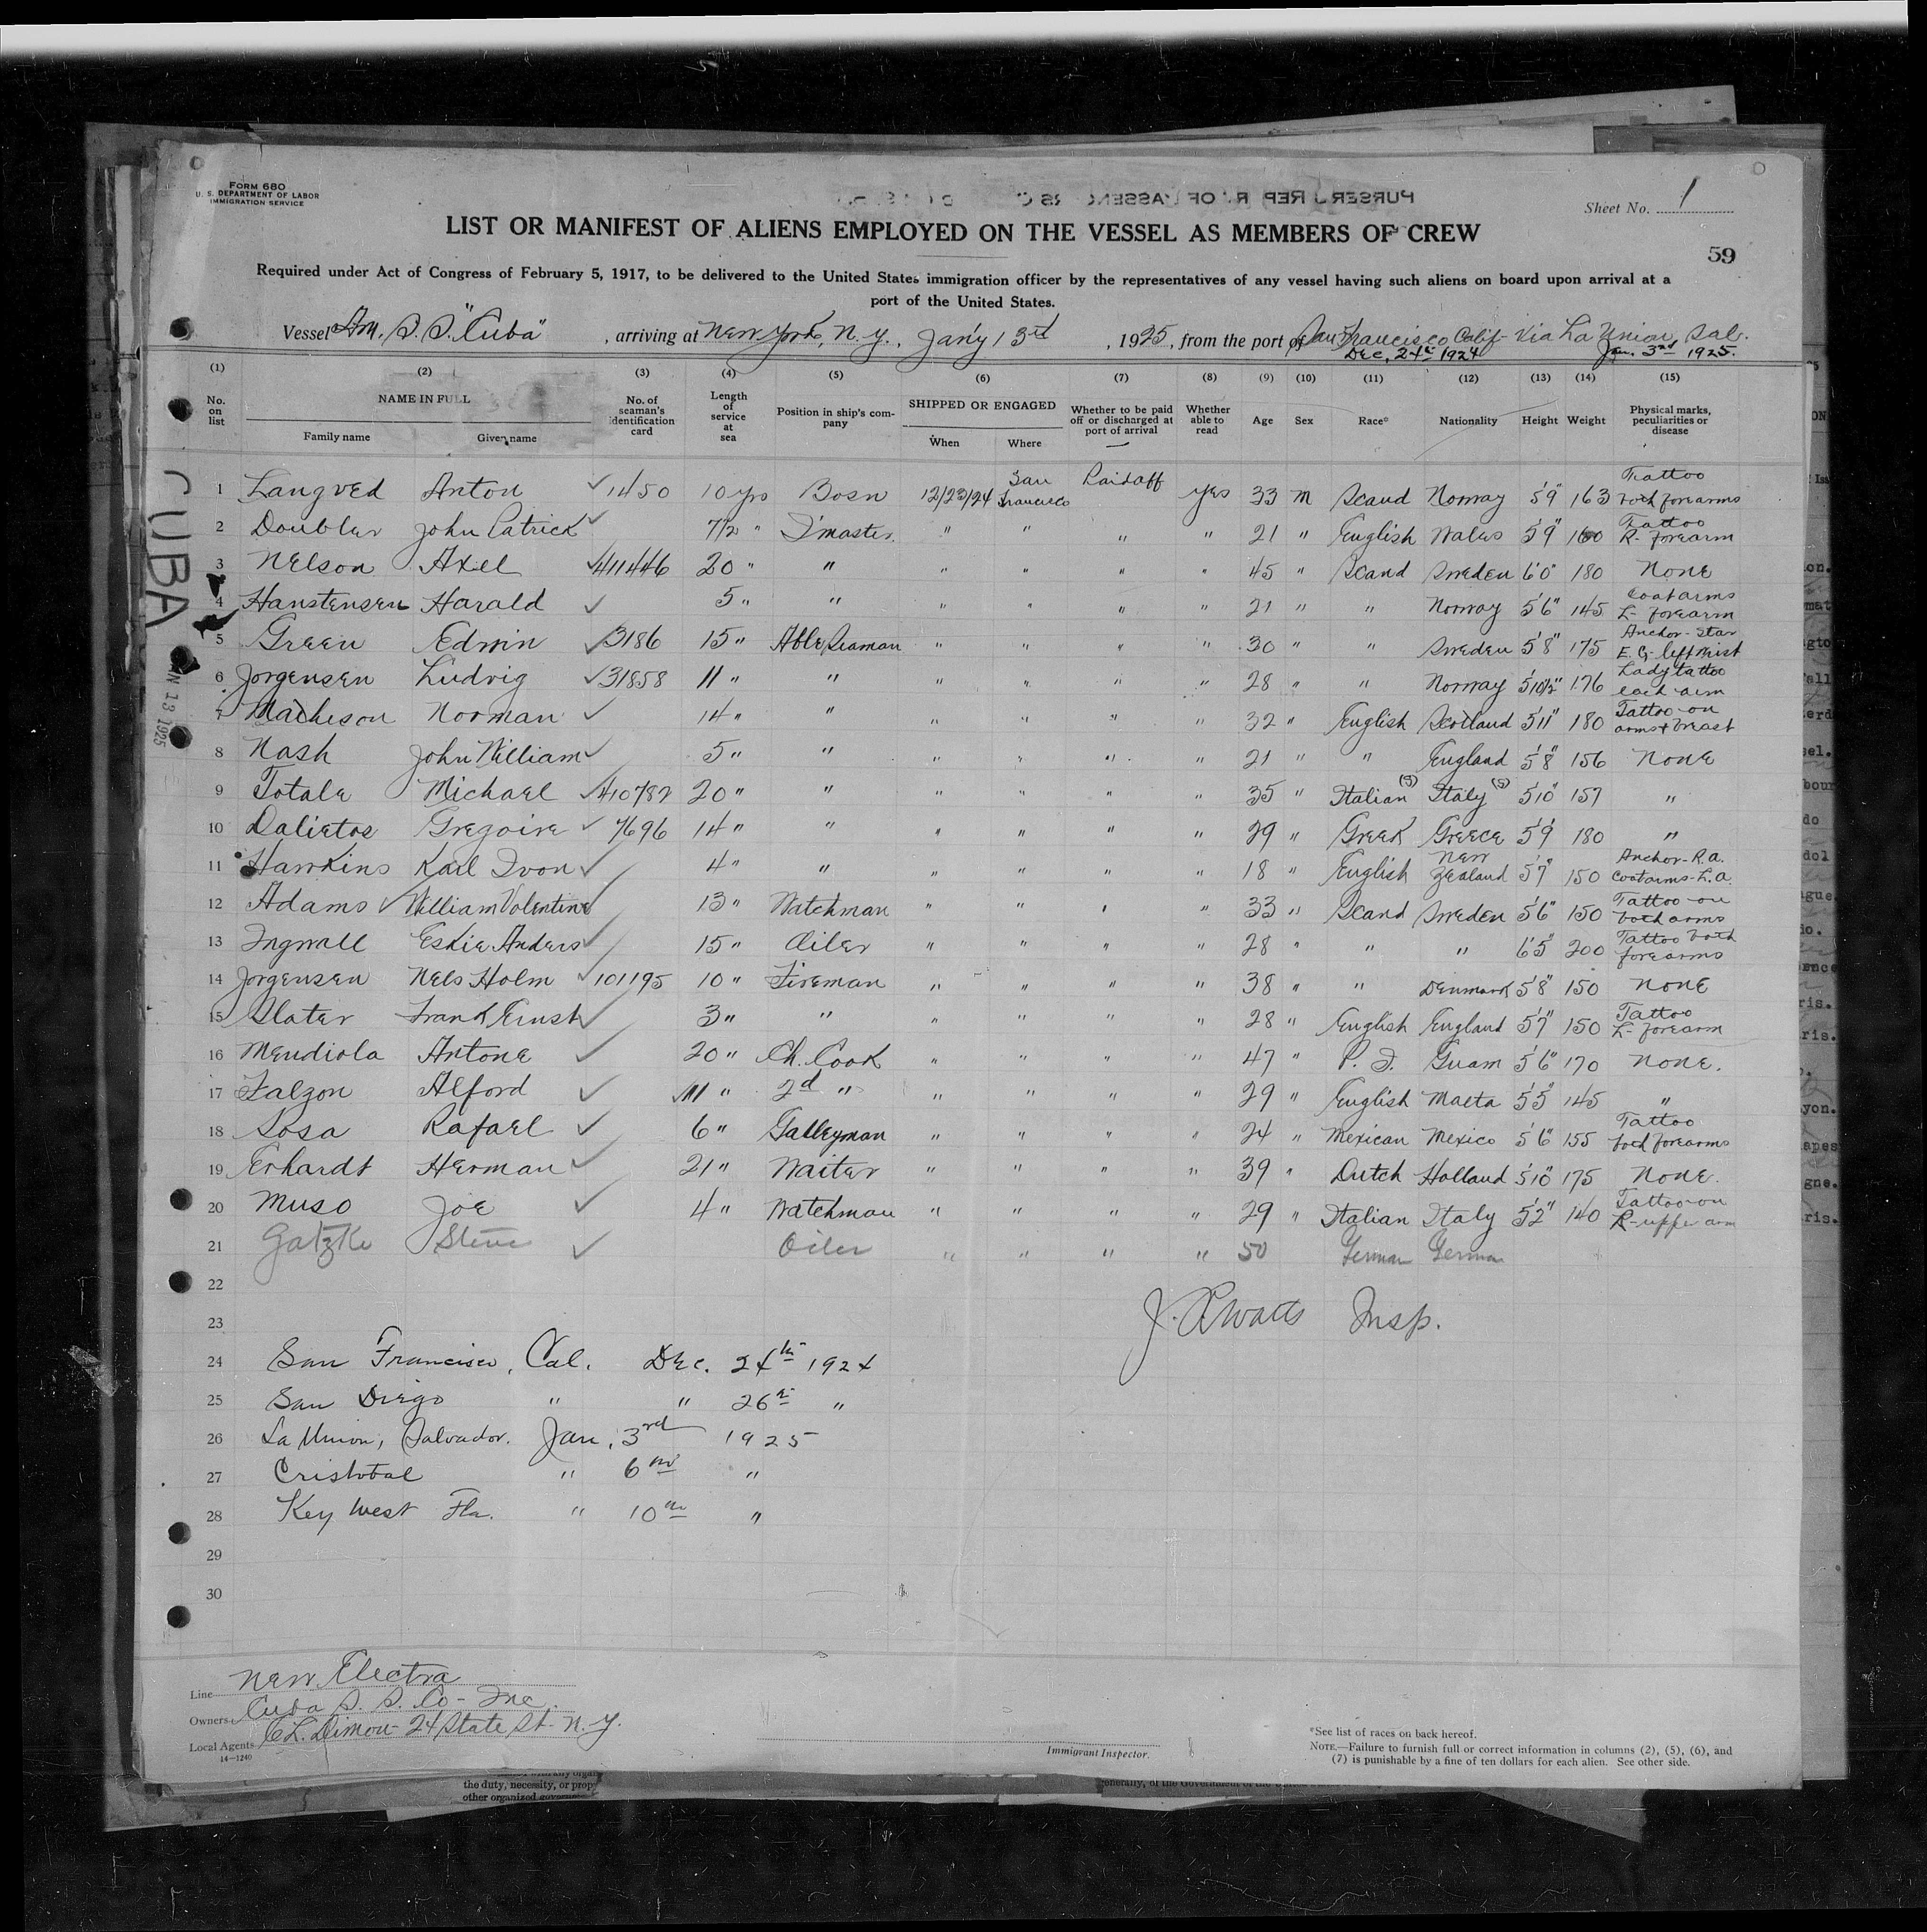 FORM 680
U. S. DEPARTMENT OF LABOR
IMMIGRATION SERVICE
Sheet No. 1
LIST OR MANIFEST OF ALIENS EMPLOYED ON THE VESSEL AS MEMBERS OF CREW
59
Required under Act of Congress of February 5, 1917, to be delivered to the United States immigration officer by the representatives of any vessel having such aliens on board upon arrival at a
port of the United States.
Vessel Am. S. S. "Cuba", arriving at New York, N. Y., Jan'y 13rd, 1925, from the port of San Francisco Calif- Via La Union, Sal.
Dec. 24th 1924 Jan. 3rd 1925.
(1) (2) (3) (4) (5) (6) (7) (8) (9) (10) (11) (12) (13) (14) (15)
No. on list NAME IN FULL Family name Given name No. of seaman's identification card Length of service at sea Position in ship's company SHIPPED OR ENGAGED When Where Whether to be paid off or discharged at port of arrival Whether able to read Age Sex Race* Nationality Height Weight Physical marks, peculiarities or disease
CUBA
JAN 13 1925
1 Langved Anton 1450 10 yrs Bosn 12/23/24 San Francisco Paid off Yes 33 M Scand Norway 5'9" 163 Tattoo both forearms
2 Doubler John Patrick 7½ " Q'master. " " " " 21 " English Wales 5'9" 160 Tattoo R- forearm
3 Nelson Axel 411446 20 " " " " " " 45 " Scand Sweden 6'0" 180 None
4 Hanstensen Harald 5 " " " " " " 21 " " Norway 5'6" 145 Coat arms L- forearm
5 Green Edwin 3186 15 " Able Seaman " " " " 30 " " Sweden 5'8" 175 Anchor- Star E. G- left wrist
6 Jorgensen Ludvig 31858 11 " " " " " " 28 " " Norway 5'10½" 176 Lady tattoo each arm
7 Matheson Norman 14 " " " " " " 32 " English Scotland 5'11" 180 Tattoo on arms & breast
8 Nash John William 5 " " " " " " 21 " " England 5'8" 156 None
9 Totale Michael 410782 20 " " " " " " 35 " Italian (S) Italy (S) 5'10" 157 "
10 Dalietos Gregoire 7696 14 " " " " " " 29 " Greek Greece 5'9" 180 "
11 Hawkins Karl Ivon 4 " " " " " " 18 " English New Zealand 5'7" 150 Anchor- R. a. Coat arms- L. a.
12 Adams William Valentine 13 " Watchman " " " " 33 " Scand Sweden 5'6" 150 Tattoo on both arms
13 Ingwall Eskie Anders 15 " Oiler " " " " 28 " " " 6'5" 200 Tattoo both forearms
14 Jorgensen Nels Holm 101195 10 " Fireman " " " " 38 " " Denmark 5'8" 150 None
15 Slater Frank Ernst 3 " " " " " " 28 " English England 5'7" 150 Tattoo L- forearm
16 Mendiola Antone 20 " Ch. Cook " " " " 47 " P. I. Guam 5'6" 170 None.
17 Falzon Alford 11 " 2d " " " " " 29 " English Malta 5'5" 145 "
18 Sosa Rafael 6 " Galleyman " " " " 24 " Mexican Mexico 5'6" 155 Tattoo both forearms
19 Erhardt Herman 21 " Waiter " " " " 39 " Dutch Holland 5'10" 175 None.
20 Muso Joe 4 " Watchman " " " " 29 " Italian Italy 5'2" 140 Tattoo on R- upper arm
21 Gatzke Steve Oiler " " " " 50 German German
22
23 J. Watts Insp.
24 San Francisco, Cal. Dec. 24th 1924
25 San Diego " " 26th "
26 La Union, Salvador. Jan, 3rd 1925
27 Cristobal " 6th "
28 Key West Fla. " 10th "
29
30
Line New Electra
Owners Cuba S. S. Co- Inc.
Local Agents C L. Dimon- 24 State St- N. Y.
14—1240
Immigrant Inspector.
*See list of races on back hereof.
NOTE.—Failure to furnish full or correct information in columns (2), (5), (6), and
(7) is punishable by a fine of ten dollars for each alien. See other side.
the duty, necessity, or prop